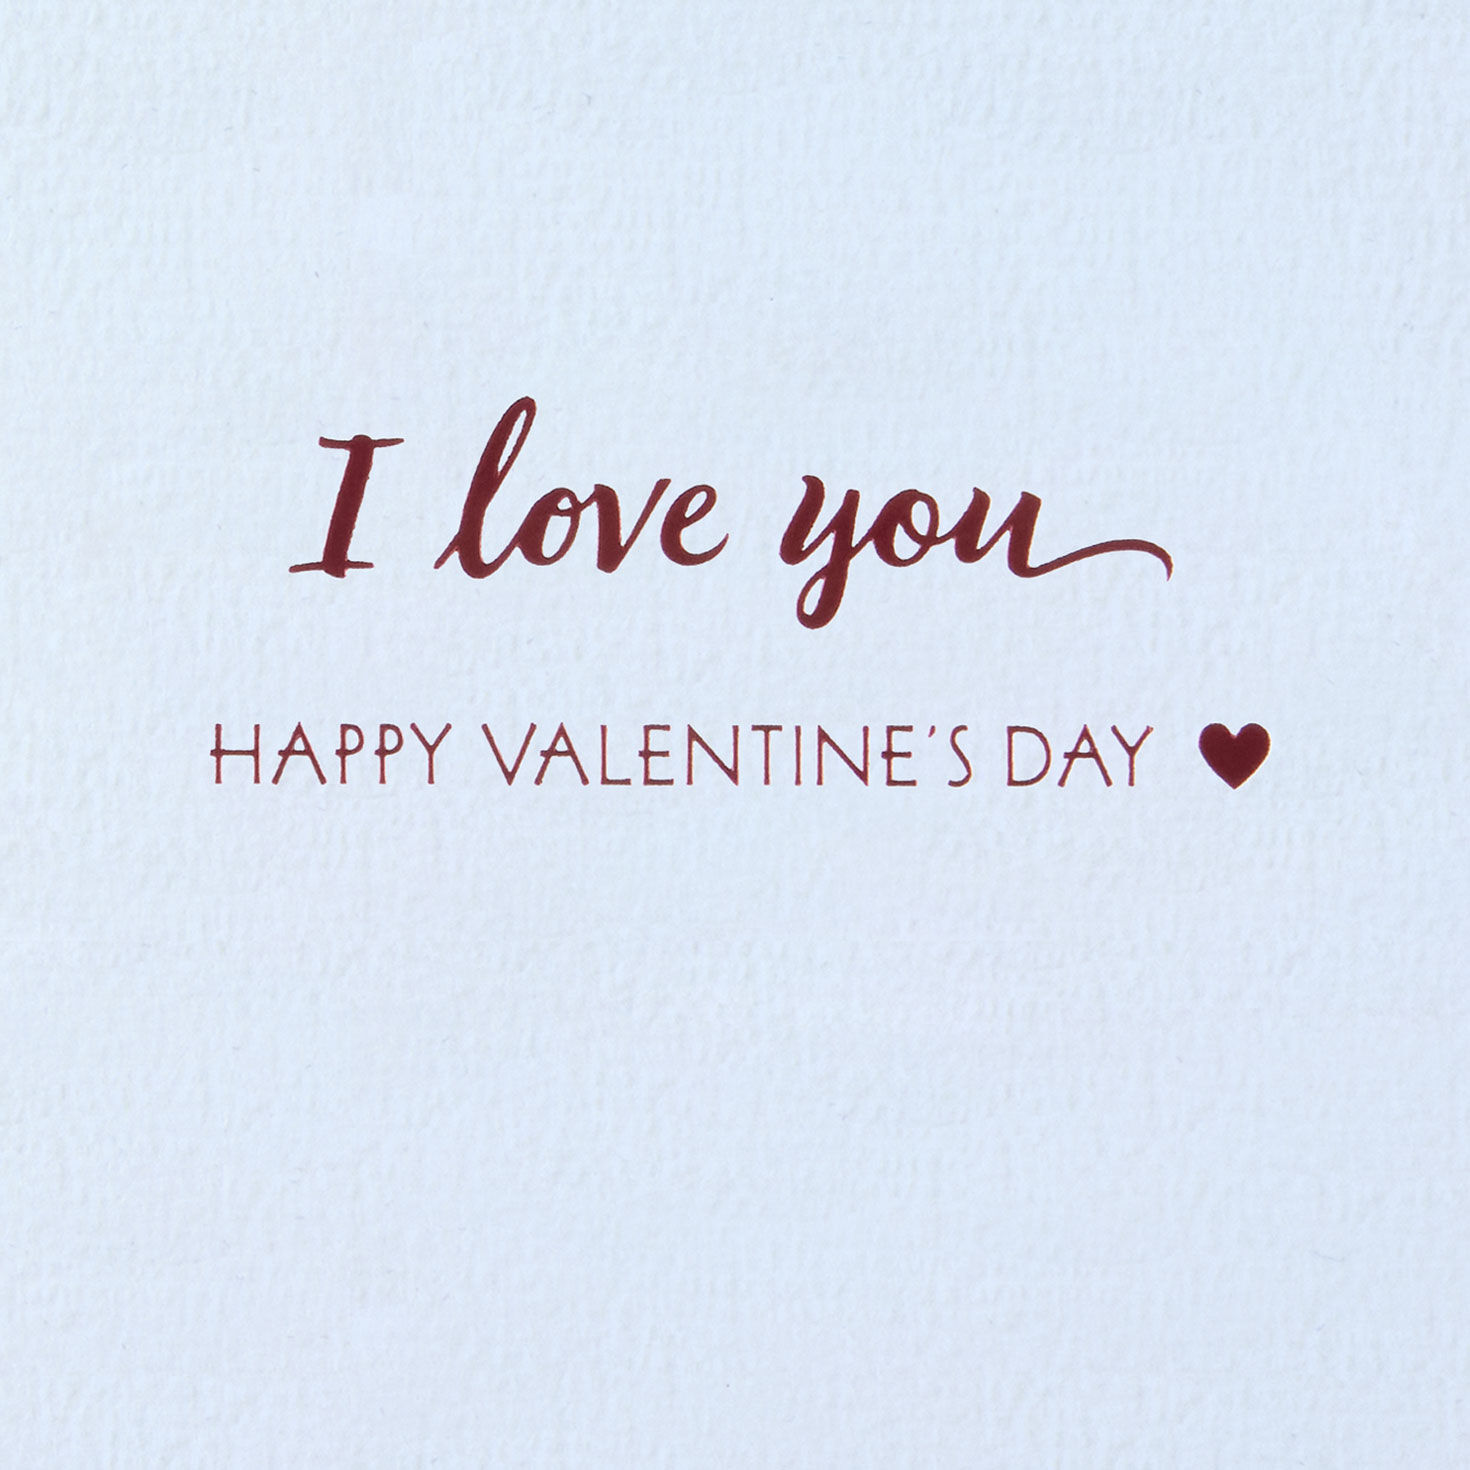 I love you
HAPPY VALENTINE'S DAY ♥